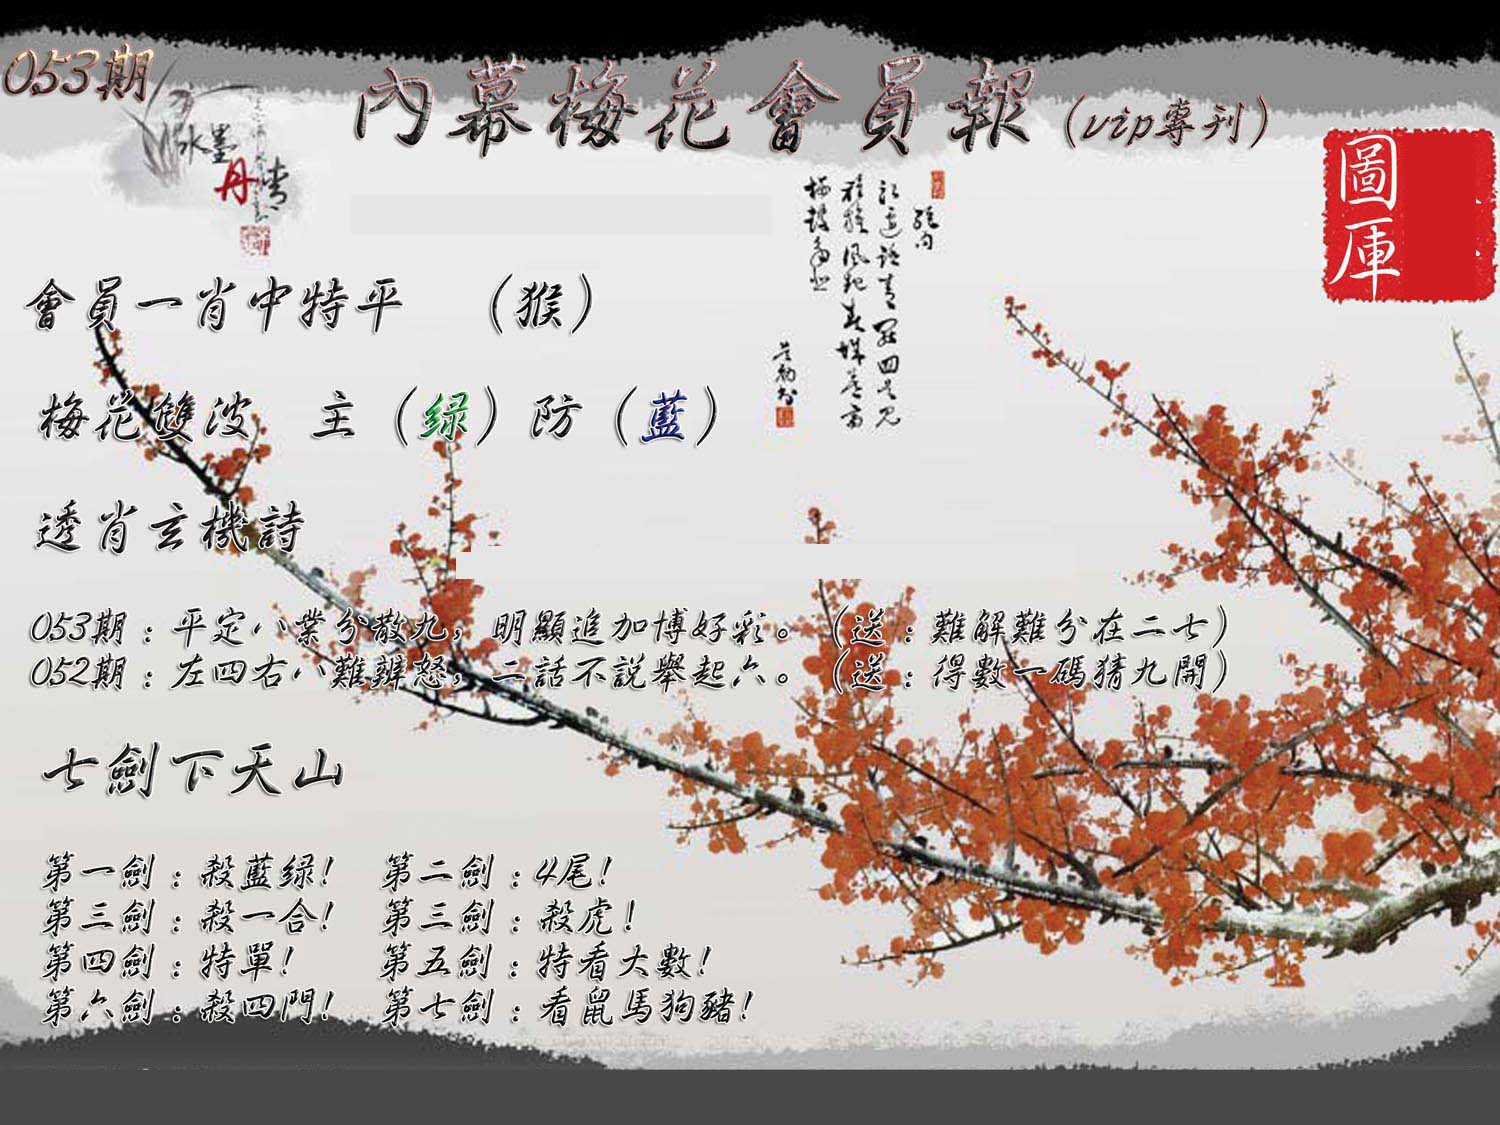 053期
內幕梅花會員報(vip專刊)
水墨
丹青
圖庫
會員一肖中特平 (猴)
梅花雙波 主(绿)防(藍)
透肖玄機詩
053期:平定八業分散九,明顯追加博好彩。(送:難解難分在二七)
052期:左四右八難辨怒,二話不説舉起六。(送:得數一碼猜九開)
七劍下天山
第一劍:殺藍绿! 第二劍:4尾!
第三劍:殺一合! 第三劍:殺虎!
第四劍:特單! 第五劍:特看大數!
第六劍:殺四門! 第七劍:看鼠馬狗豬!